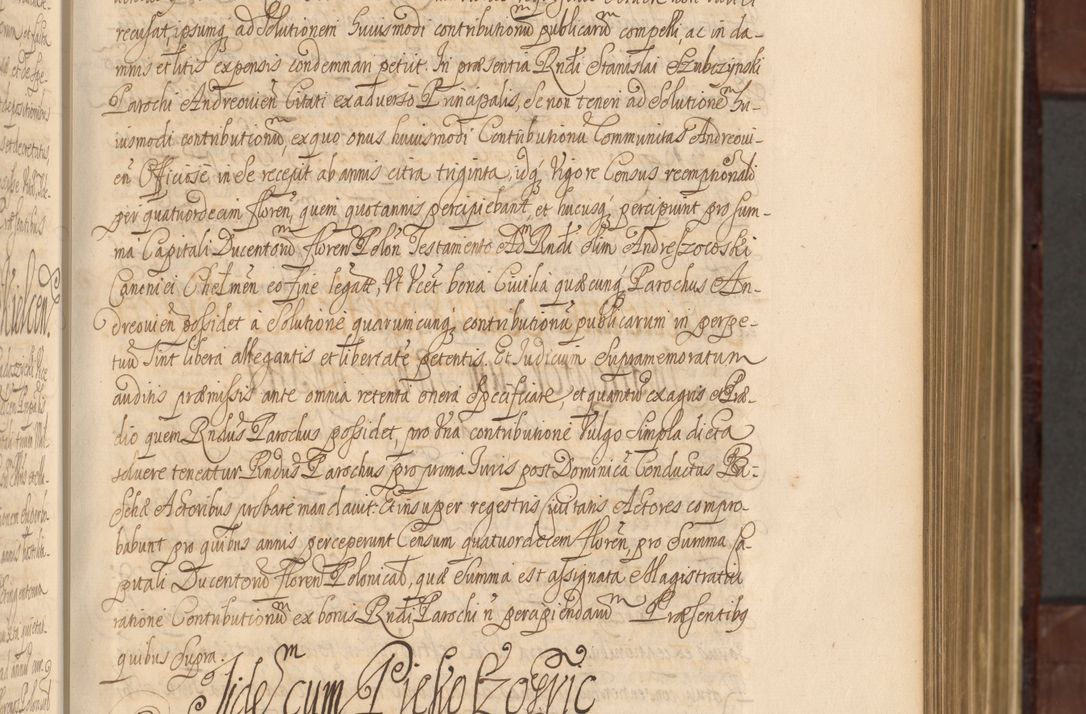 recusat, ipsumq, ad Solutionem huiusmodi contributionũ publicarũ compelli, ac in da-
mnis et litis expensis condemnari petiit. In præsentia Rndi Stanislai
Parochi Andreovien Citati ex adverso Principalis, se non teneri ad Solutionẽ hu-
iusmodi contributionũ, ex quo onus huiusmodi Contributionũ Communitas Andreovi-
eñ Officiose in se recepit ab annis citra triginta, idq Vigore Census reemptionalis
per quatuordecim floreñ, quem quotannis percipiebant, et hucusq percipiunt pro sum-
ma Capitali Ducentorũ floren Poloñ Testamento Adm Rndi olim Andreæ
Canonici Chelmen eo fine legata, Ut Ucet bona Civilia quæcunq Parochus An-
dreovien possidet a Solutione quarumcunq contributionũ publicarum in perpe-
tuũ sint libera allegantis et libertate petentis. Et Iudicium Supramemoratum
auditis præmissis ante omnia retenta onera specificare, et quantũ ex agris et Præ-
dio quem Rndus Parochus possidet, pro Una contributione Vulgo Simpla dicta
solvere teneatur Rndus Parochus pro prima Iuris post Dominicã Conductus Pa-
schæ Actoribus probare mandavit: Et insuper regestris civitatis Actores compro-
babunt pro quibus annis perceperunt Censum quatuordecem floreñ, pro Summa Ca-
pitali Ducentorũ floren Polonical, quæ Summa est assignata Magistratui
ratione Contributionũ ex bonis Rndi Parochi ñ peragiendarũ Præsentibq
quibus supra.
Iidem cum